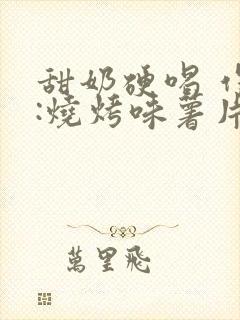 甜奶硬喝
:燒烤味薯片
萬里飛